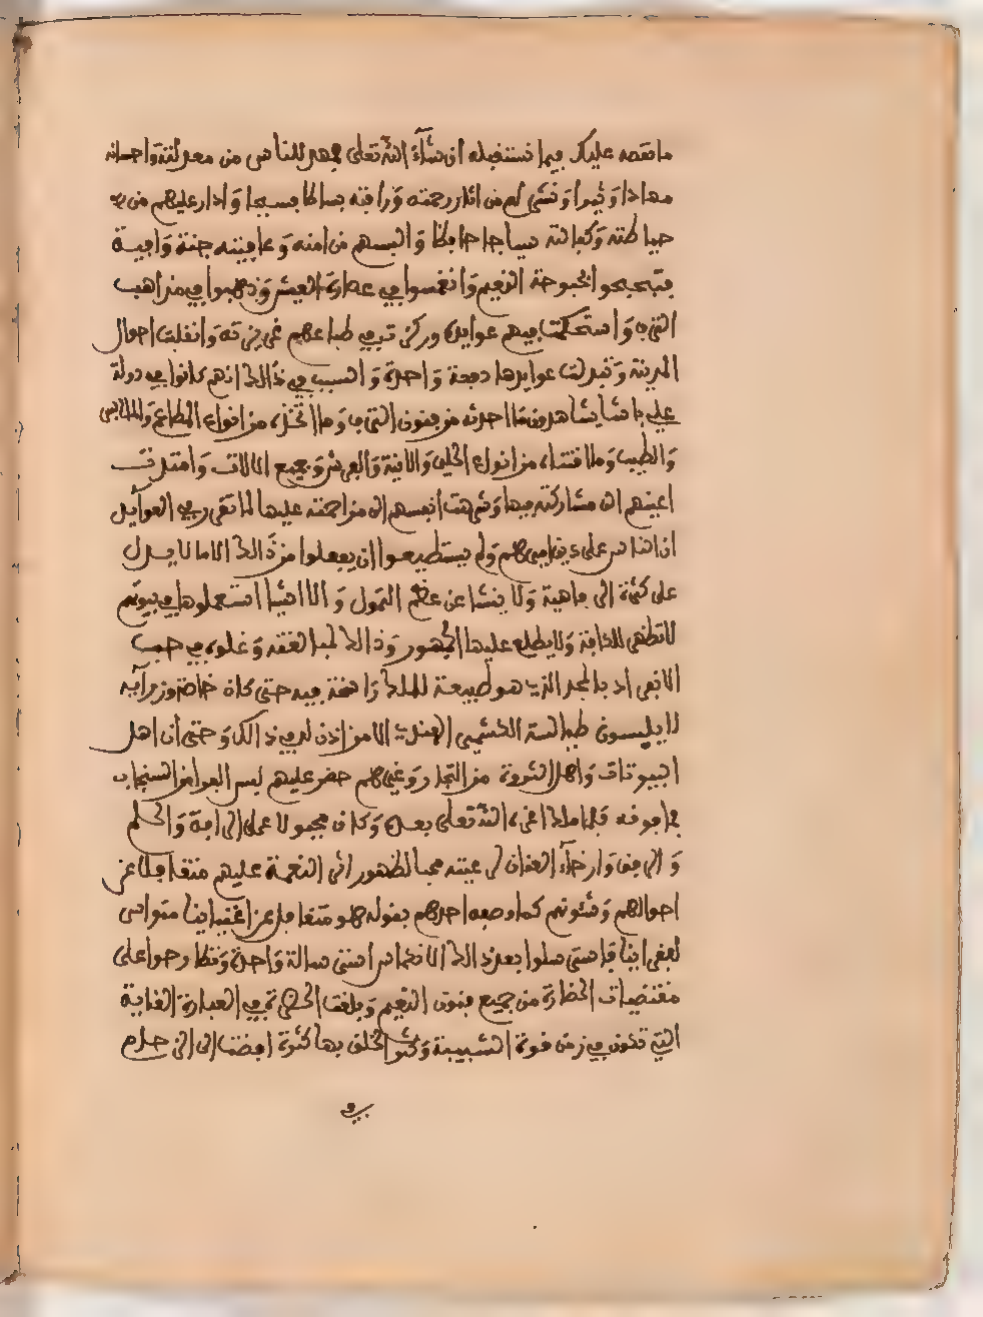 ما نقصه عليك فيما نستقبله ان شآء الله تعلى بمهد للناس من معدلته واحسانه
مهادا وثيرا ونشر لهم من اثار رحمته ورافته بساطا فسيحا وادار عليهم من
حياطته وكفالته سياجا حافظا والبسهم من امنه وعافيته جنة واقية
فتبحبحوا بحبوحة النعيم وانغمسوا في غضارة العيش وذهبوا في مذاهب
الترف واستحكمت فيهم عوايده وركزت في طباعهم غريزته وانقلبت احوال
المدينة وتبدلت عوايدها دفعة واحدة والسبب في ذالك انهم كانوا في دولة
علي باشا يشاهدون ما احدثه من فنون الترف وما اتخذه من انواع المطاعم والملابس
والطيب وما اقتناه من انواع الحلي والانية والفرش وجميع الالات وامتدت
اعينهم الى مشاركته فيها وشرهت انفسهم الى مزاحمته عليها لما تقرر في العوآيد
ان الناس على دين اميرهم ولم يستطيعوا ان يفعلوا من ذالك الا ما لا يدل
على كثرة الرفاهية ولا ينشا عن عظم التمول والا اشيا استعملوها في بيوتهم
لا تظهر للكافة ولا يطلع عليها الجمهور وذالك لمبالغته وغلوه في حب
الانفراد بالمجد الذي هو طبيعة للملك راسخة فيه حتى كان خاصة وزرآيه
لا يلبسون طيالسة الكشمير الهندي الا من اذن له في ذالك وحتى ان اهل
البيوتات واهل الثروة من التجار وغيرهم حضر عليهم لبس الفوا من السنجاب
فما فوقه فلما ملك اغره الله تعلى بعده وكان مجبولا على الرافة والحلم
والرفق وارخآء العنان لرعيته محبا لظهور اثر النعمة عليهم متغافلا عن
احوالهم وشئونهم كما وصفه احدهم بقوله هو متغافل عن اغنيايينا متواس
لفقراينا فاسترسلوا بعد ذالك الانكماش استرسالة واحدة وتطارحوا على
مقتضيات الحضارة من جميع فنون النعيم وبلغت الحضرة في العمارة الغاية
التي تكون في زمن قوة الشبيبة وكثر الخلق بها كثرة افضت الى الزحام
في